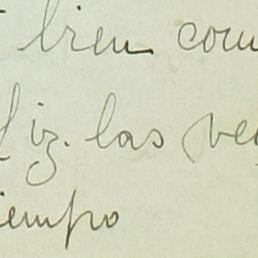 bien com
iz. las ve
iempo